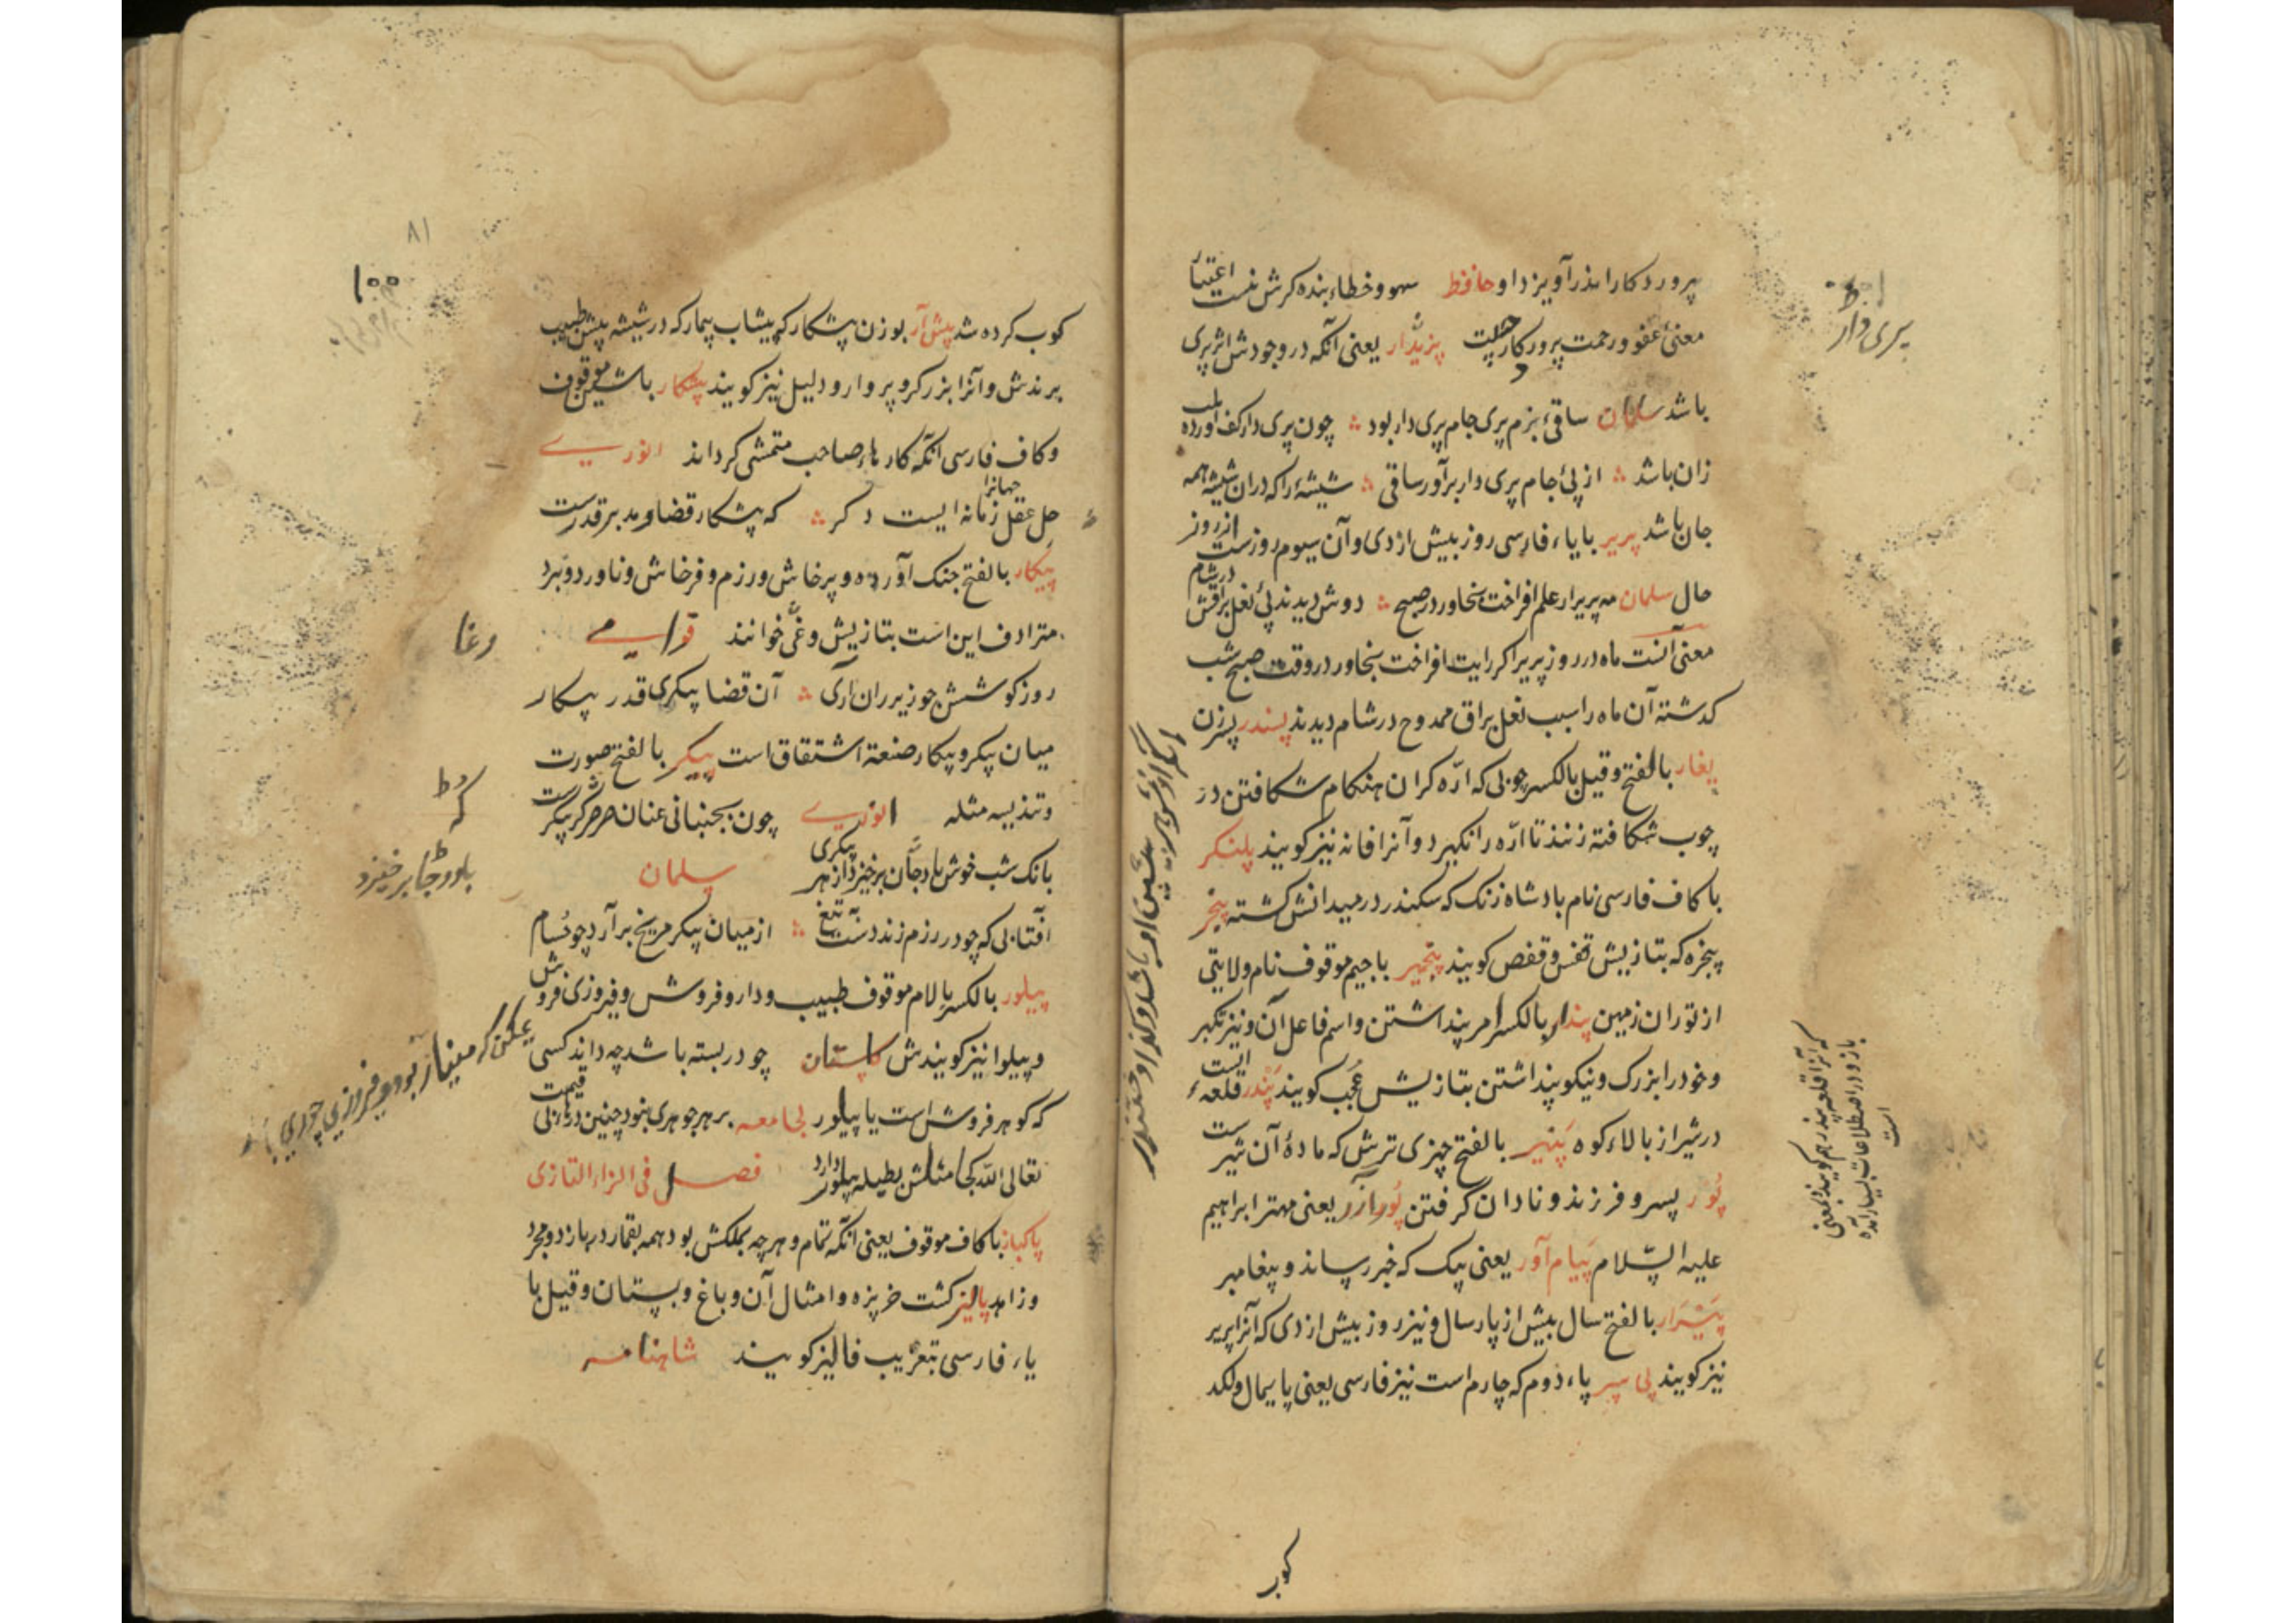 پروردکارا اندر آویزد او حافظ سهو و خطاء بنده کرش نیست اعتبار
معنیٔ عفو و رحمت پرورکار چیست پریدار یعنی آنکه در وجودش اثر پری
باشد سلمان ساقیٔ بزم پری جام پری دار بود چون پری دار کف اورده بلب
زان باشد از پیٔ جام پری دار برآور ساقی شیشهٔ را که دران شیشه همه
جان باشد پریر بایاء فارسی روز بیش از دی و آن سیوم روزست از روز
حال سلمان مه پریر ار علم افراخت بخاور در صبح دوش دیدند پیٔ نعل براقش در شام
معنی آنست ماه در روز پریر اکر رایت افراخت بخاور در وقت صبح شب
کذشته آن ماه را سبب نعل براق ممدوح در شام دیدند پسندر پسر زن
پغار بالفتح و قیل بالکسر چوبی که ارّه کران هنکام شکافتن در
چوب شکافته زنند تا ارّه را نکیرد و آنرا فانه نیز کویند پلنکر
با کاف فارسی نام بادشاه زنک که سکندر در میدانش کشته پنجر
پنجره که بتازیش قفس و قفص کویند پنجیر با جیم موقوف نام ولایتی
از توران زمین پندار بالکسر امر پنداشتن و اسم فاعل آن و نیز تکبر
و خود را بزرک و نیکو پنداشتن بتازیش عُجب کویند پندر قلعهٔ ایست
در شیراز بالاء کوه پنیر بالفتح چیزی ترش که مادهٔ آن شیرست
پور پسر و فرزند و نادان کرفتن پور آزر یعنی مهتر ابراهیم
علیه السّلام پیام آور یعنی پیک که خبر رساند و پیغامبر
پیرار بالفتح سال بیش از پارسال و نیز روز بیش از دی که آنرا پریر
نیز کویند پی سپر پاء دوم که چارم است نیز فارسی یعنی پایمال و لکد
کوب
پری دار
که آنرا قلعه پندر هم کویند و بمعنی
باز و در اصطلاحات بسیار آمده
است
۸۱
۱۰۰
کوب کرده شد پیش آر بوزن پیشکار که پیشاب بیمار که در شیشه پیش طبیب
برندش و آنرا بزرکرو پروار و دلیل نیز کویند پیشکار باشین موقوف
و کاف فارسی آنکه کارهاء صاحب متمشی کرداند انوری
حل عقل زمانه ایست دکر که پیشکار قضا و مدبر قدرست
جهانرا
پیکار بالفتح جنک آورده و پرخاش و رزم و فرخاش و ناورد و نبرد
مترادف این است بتازیش وغی خوانند قوامی
وغا
روز کوشش چو زیر ران آری آن قضا پیکری قدر پیکار
میان پیکر و پیکار صنعة اشتقاق است پیکر بالفتح صورت
وتندیسه مثله انوری چون بجنبانی عنان صرصر کر پیکرست
بانک شب خوش باد جان برخیزد از هر پیکری سلمان
باد و جا برخیزد
آفتابی که چو در رزم زند دست بتیغ از میان پیکر مریخ برآرد چو حسام
پیلور بالکسر بالام موقوف طبیب و دارو فروش و فیروزی فروش
و پیلوا نیز کویندش کلستان چو در بسته باشد چه داند کسی
که کوهر فروش است یا پیلور لجامعه بر هر جوهری بنود چنین در قیمت
تعالی الله کجا مثلش بطیله پیلور دارد فصل فی الزاء التازی
پاکباز باکاف موقوف یعنی آنکه تمام و هر چه بملکش بود همه بقمار در بازد و مجرد
و زاهد پالیز کشت خربزه و امثال آن و باغ و بستان و قیل با
یاء فارسی تعریب فالیز کویند شاهنامه